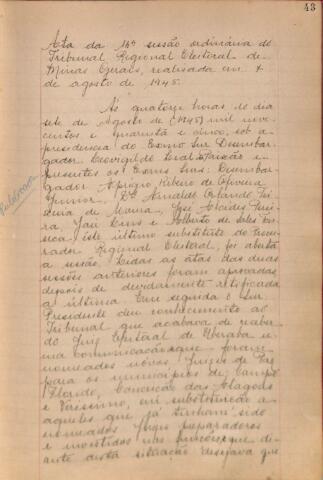 43
Ata da 14ª sessão ordinária do
Tribunal Regional Eleitoral de
Minas Gerais, realisada em 7
de agosto de 1945.
As quatorze horas do dia
sete de Agosto de (1945) mil nove
centos e quarenta e cinco, sob a
presidencia do Exmo Snr Desembar-
gador Leovigildo Leal da Paixão e
presentes os Exmos Snrs: Desembar-
gador Aprigio Ribeiro de Oliveira
Junior, Drs
José Alcides Perei-
ra, e Alberto de
este ultimo substituto do Procu-
rador Regional Eleitoral, foi aberta
a sessão. Lidas as atas das duas
sessões anteriores foram aprovadas
depois de devidamente retificada
a última. Em seguida o Snr.
Presidente deu conhecimento ao
Tribunal que acabava de receber
do Juiz Eleitoral de Uberaba u-
ma comunicação que foram
nomeados novos Juizes de Paz
para os municipios de: Campo
Florido, Conceição das Alagoas
e Verissimo, em substituição a
aqueles que já tinham sido
nomeados Juizes preparadores
e investidos nas funções que di-
ante desta situação desejava que